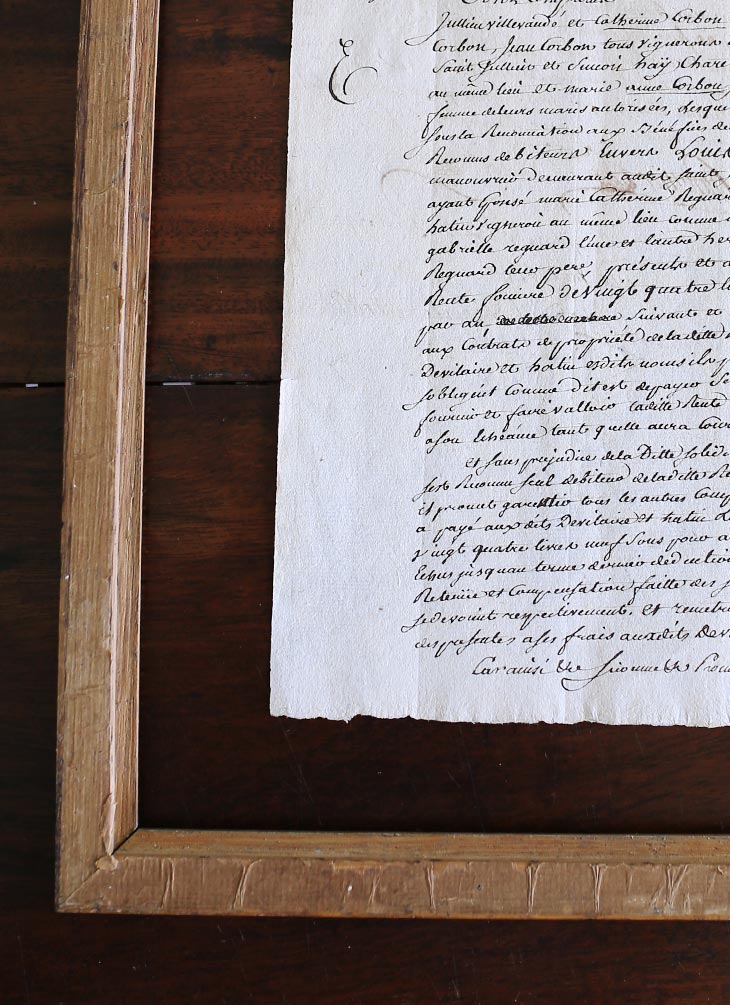 Jullien villevandé et Catherine Corbon
Corbon, Jean Corbon tous vignerons
Saint Jullien et Simon hay Chare
au même lieu et marie anne Corbon
femme de leurs maris autorisées, Lesque
sous la Renonciation aux Bénéfices de
Reconnus debiteurs Envers Louis
manouvrier demeurant audit saint
ayant Epousé marie Catherine Regnar
hatin vigneron au même lieu comme
gabrielle regnard l'une et l'autre her
Regnard leur pere, présents et a
Rente fonciere de vingt quatre l
par an suivante et
aux Contrats de propriété de la ditte
Devilaire et hatin esdits noms ils
sobligent Comme dit est de payer
fournir et faire valloir laditte Rente
a son Echéance tant quelle aura cour
et sans prejudice de la Ditte solid
sest Reconnu seul debiteur de laditte Re
et promet garentir tous les autres Comp
a payé aux dits Devilaire et hatin
vingt quatre livres neuf sous pour a
Echus jusquau terme dernier deduction
Retenüe et Compensation faitte des
se devoient respectivement, et remettr
des presentes a ses frais auxdits Dev